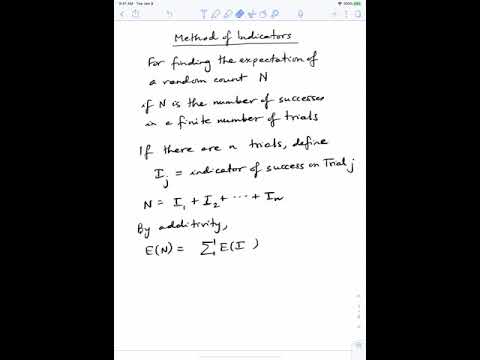 Method of Indicators
For finding the expectation of
a random count N
if N is the number of successes
in a finite number of trials
If there are n trials, define
I_j = indicator of success on Trial j
N = I_1 + I_2 + ... + I_n
By additivity,
E(N) = Σ E(I )